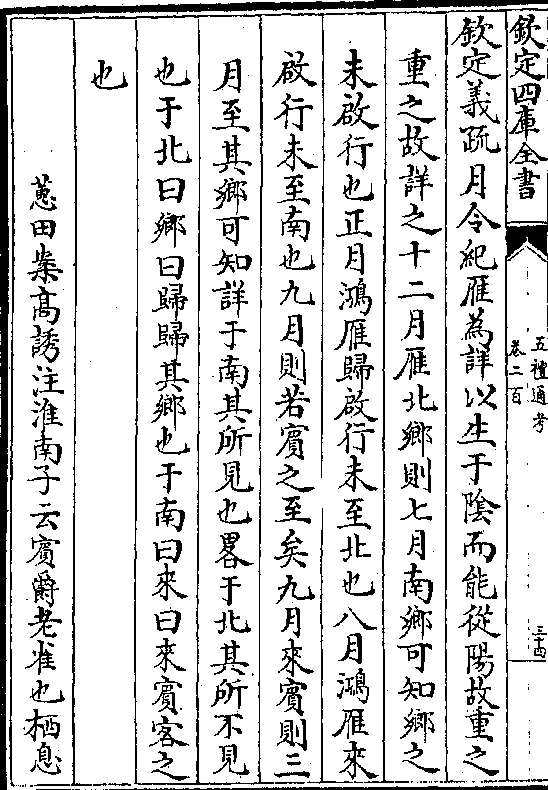 欽定四庫全書
五禮通考
卷二百
三十四
欽定義疏月令紀雁為詳以生于陰而能從陽故重之
重之故詳之十二月雁北鄉則七月南鄉可知鄉之
未啟行也正月鴻雁歸啟行未至北也八月鴻雁來
啟行未至南也九月則若賓之至矣九月來賓則二
月至其鄉可知詳于南其所見也畧于北其所不見
也于北曰鄉曰歸歸其鄉也于南曰來曰來賓客之
也
蕙田案高誘注淮南子云賓爵老雀也栖息